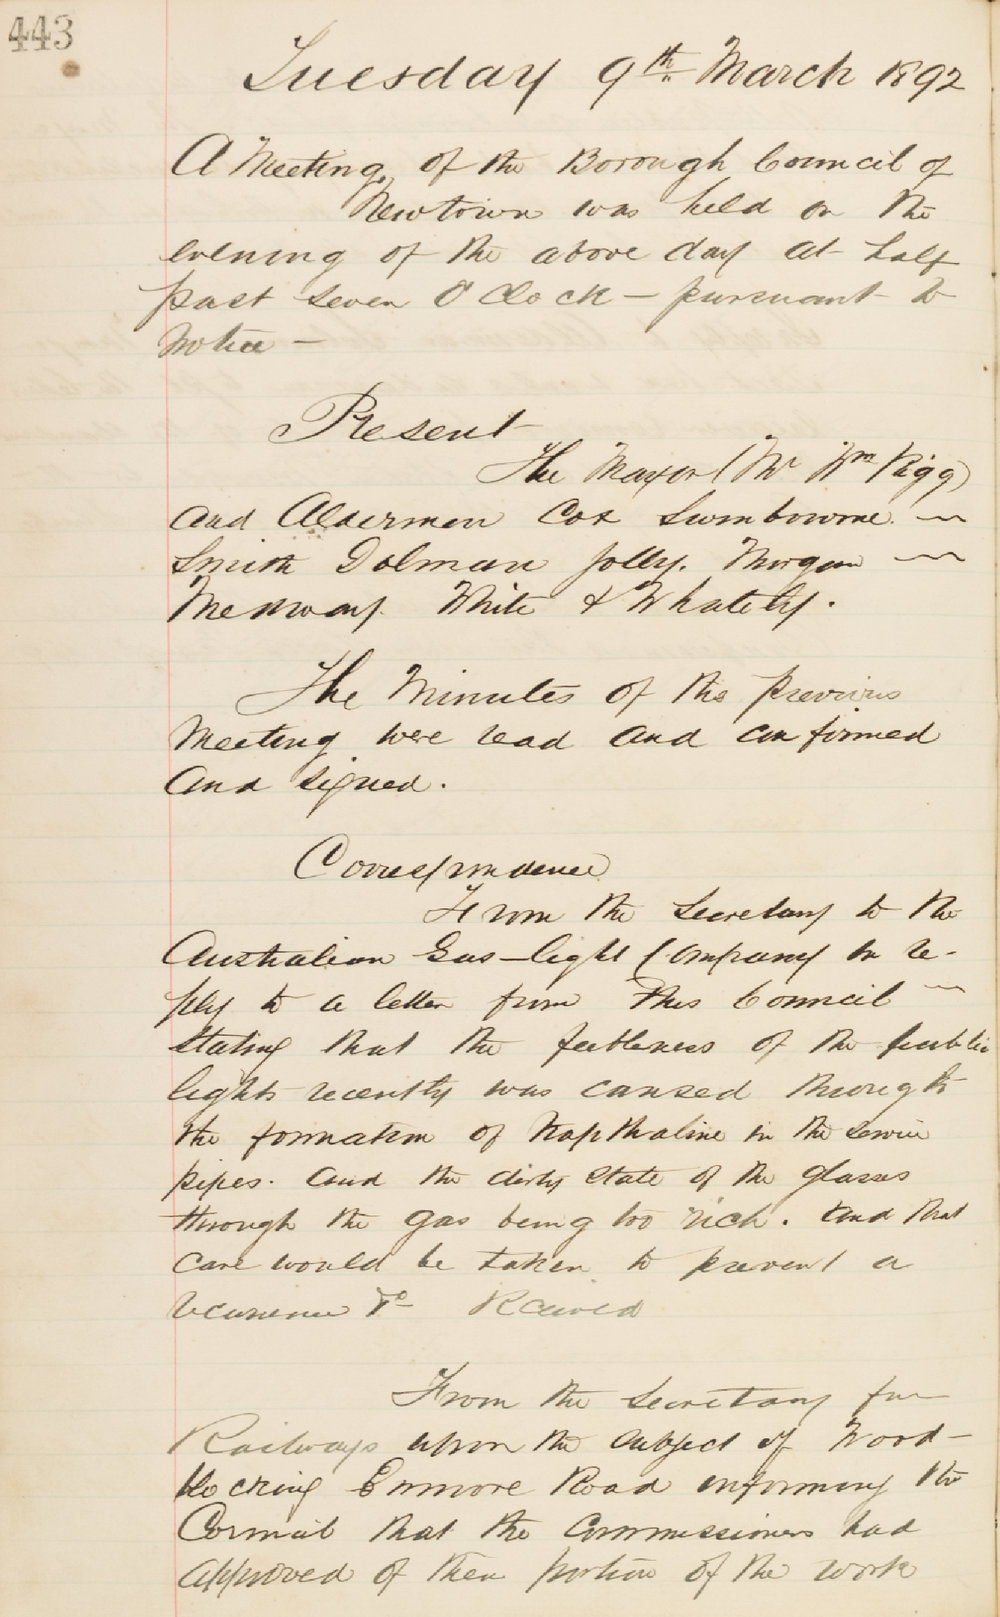 443
Tuesday 9th March 1892
A Meeting of the Borough Council of
Newtown was held on the
evening of the above day at half
past seven O'Clock – pursuant to
notice –
Present
The Mayor (Mr Wm Rigg)
and Aldermen Cox Swinbourne
Smith Dolman Jolly. Morgan
Messway. White & Whately.
The Minutes of the previous
Meeting were read and confirmed
and signed.
Correspondence
From the Secretary to the
Australian Gas-light Company in re-
ply to a letter from this Council
stating that the feebleness of the public
lights recently was caused through
the formation of Napthaline in the service
pipes. and the dirty state of the glasses
through the gas being too rich. and that
care would be taken to prevent a
recurrence &c – Received
From the Secretary for
Railways upon the subject of Wood-
blocking Enmore Road informing the
Council that the Commissioners had
approved of their portion of the work